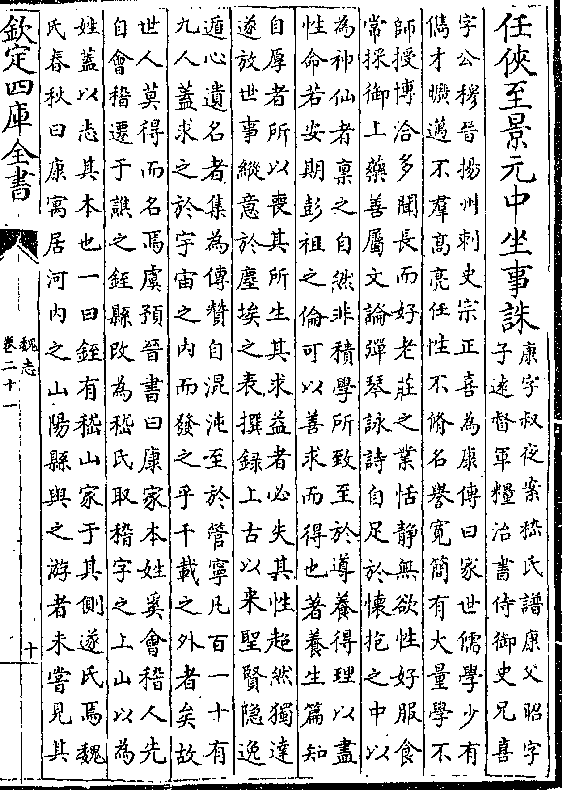 任俠至景元中坐事誅
康字叔夜案嵇氏譜康父昭字
子逺督軍糧治書侍御史兄喜
字公穆晉揚州刺史宗正喜為康傳曰家世儒學少有
儁才曠邁不羣髙亮任性不脩名譽寛簡有大量學不
師授博洽多聞長而好老莊之業恬靜無欲性好服食
常採御上藥善屬文論彈琴詠詩自足於懐抱之中以
為神仙者稟之自然非積學所致至於導養得理以盡
性命若安期彭祖之倫可以善求而得也著養生篇知
自厚者所以喪其所生其求益者必失其性超然獨達
遂放世事縱意於塵埃之表撰録上古以来聖賢隐逸
遁心遺名者集為傳贊自混沌至於管寧凡百一十有
九人蓋求之於宇宙之內而發之乎千載之外者矣故
世人莫得而名焉虞預晉書曰康家本姓奚會稽人先
自會稽遷于譙之銍縣改為嵇氏取稽字之上山以為
姓蓋以志其本也一曰銍有嵇山家于其側遂氏焉魏
氏春秋曰康寓居河內之山陽縣與之游者未嘗見其
欽定四庫全書
魏志
卷二十一
十